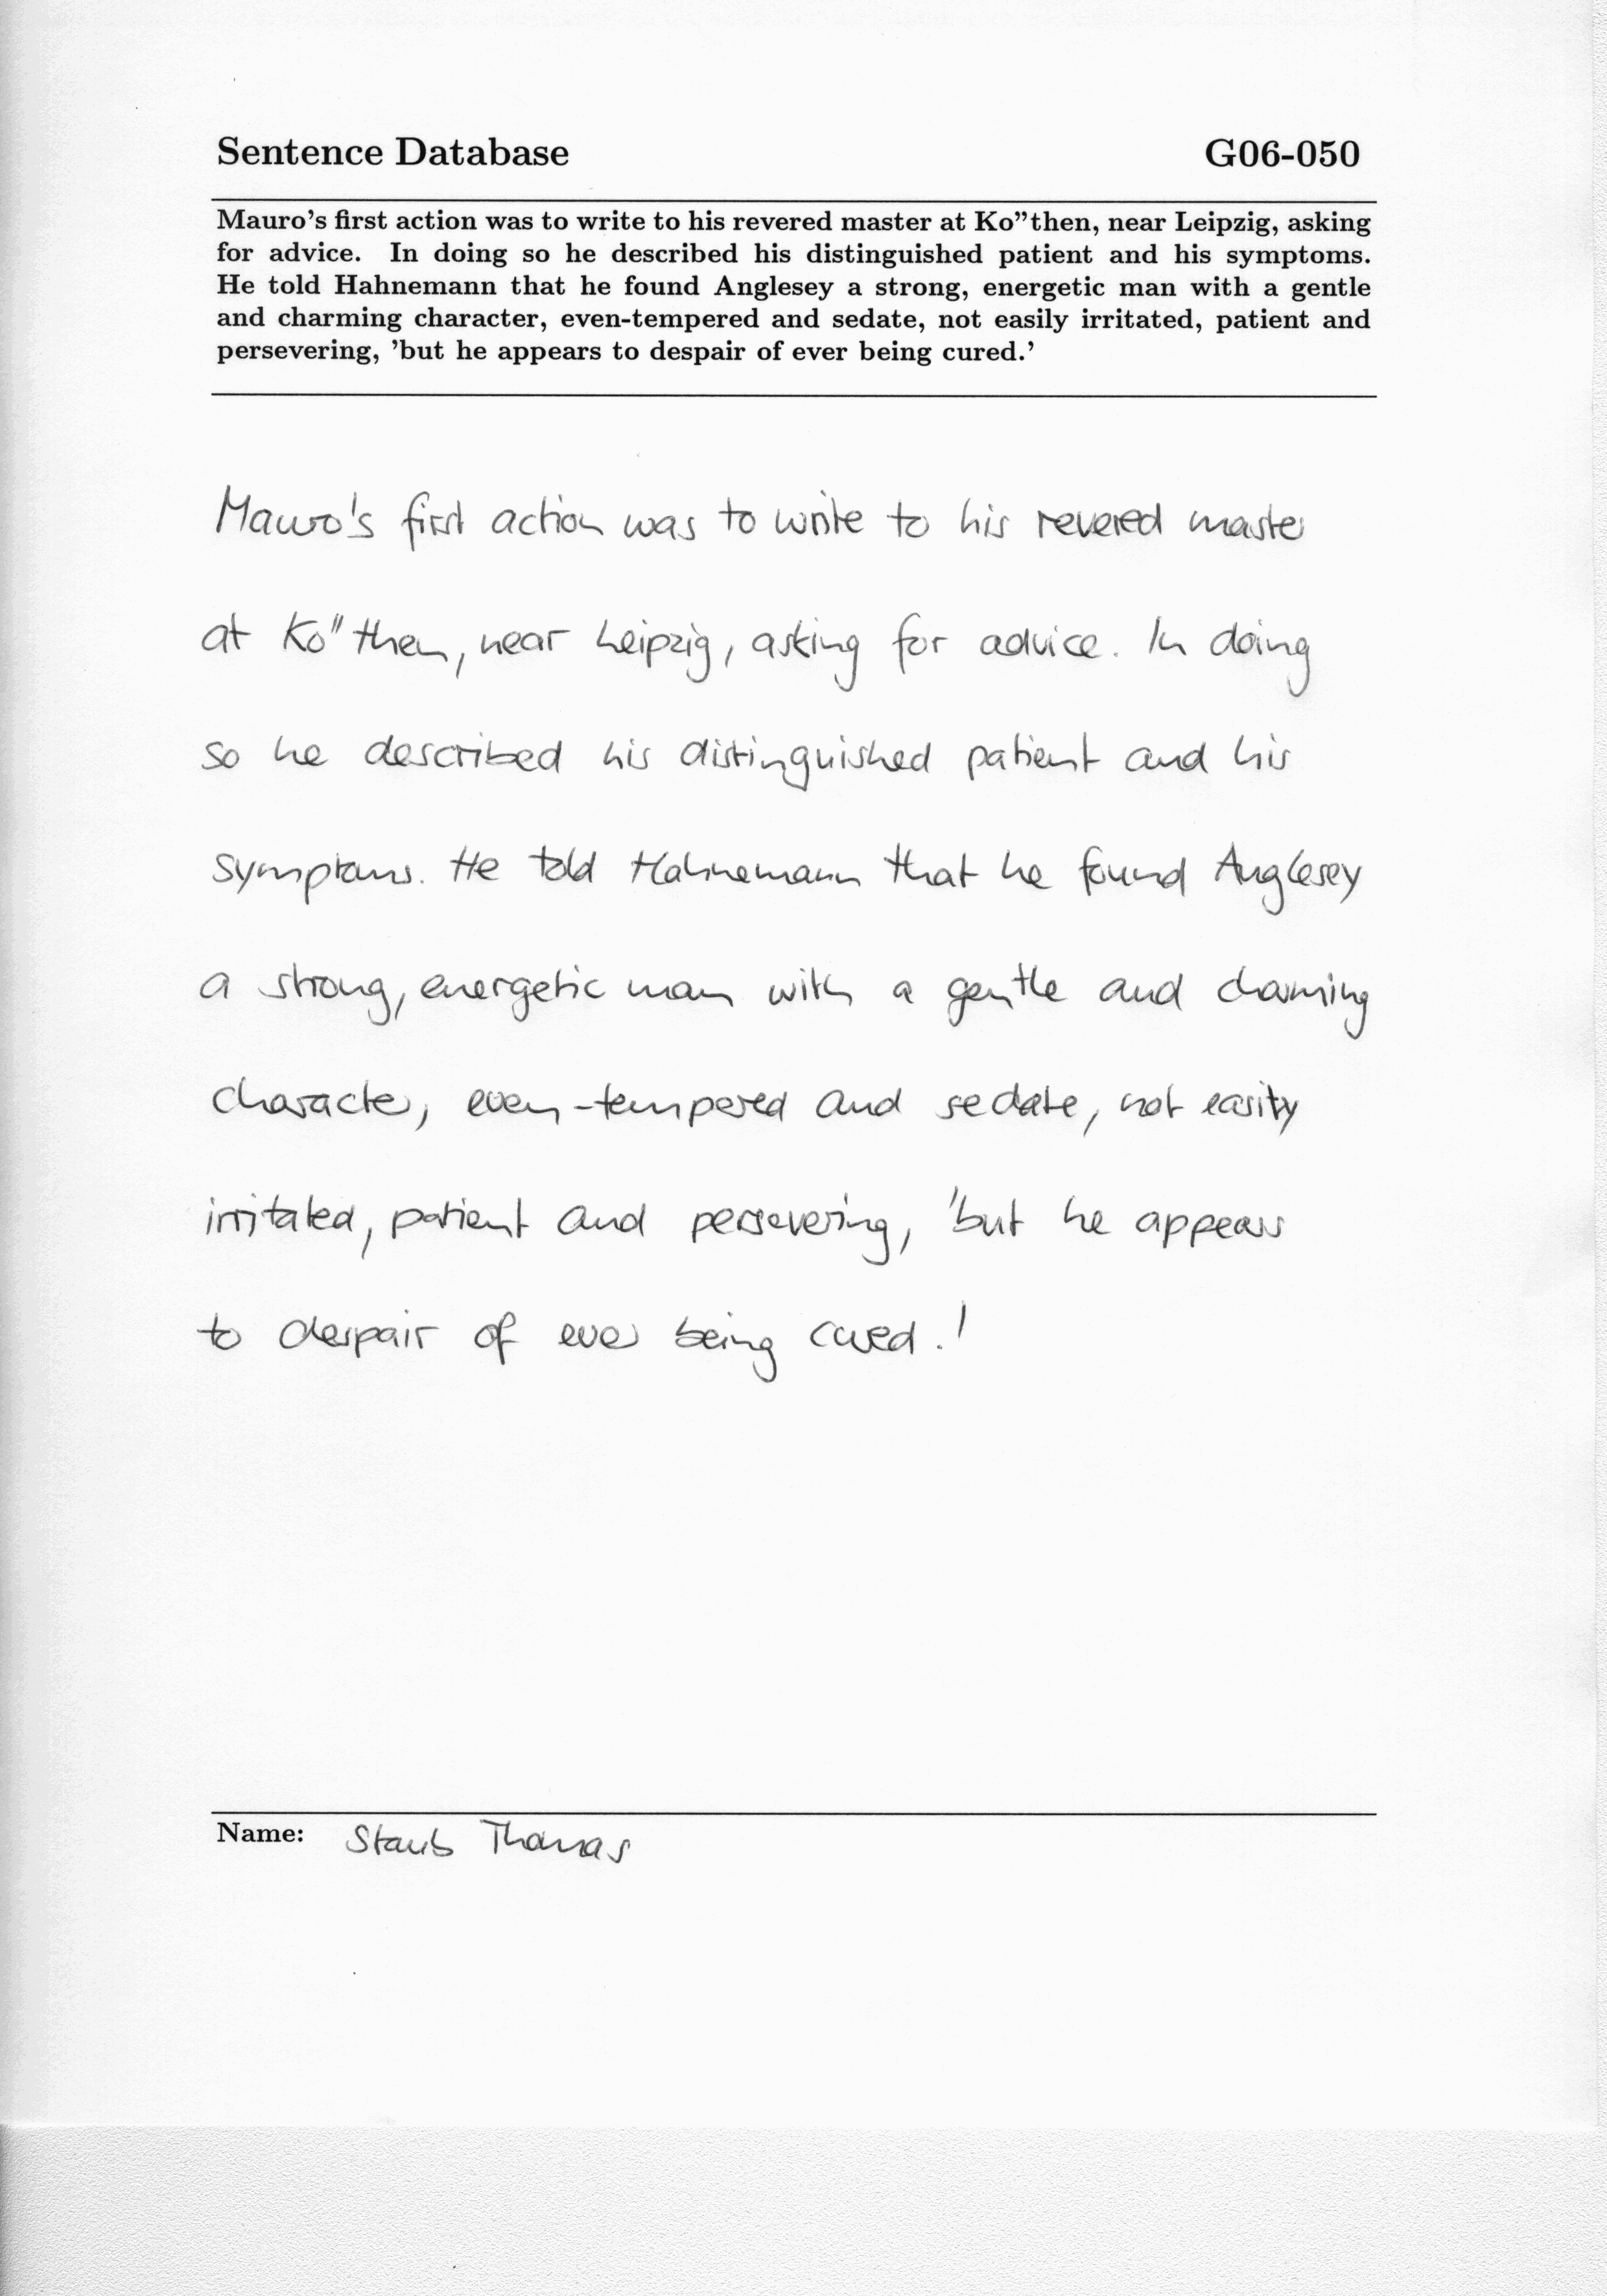 Sentence Database G06-050
Mauro's first action was to write to his revered master at Ko"then, near Leipzig, asking
for advice. In doing so he described his distinguished patient and his symptoms.
He told Hahnemann that he found Anglesey a strong, energetic man with a gentle
and charming character, even-tempered and sedate, not easily irritated, patient and
persevering, 'but he appears to despair of ever being cured.'
Mauro's first action was to write to his revered master
at Ko"then, near Leipzig, asking for advice. In doing
so he described his distinguished patient and his
symptoms. He told Hahnemann that he found Anglesey
a strong, energetic man with a gentle and charming
character, even-tempered and sedate, not easily
irritated, patient and persevering, 'but he appears
to despair of ever being cured.'
Name: Staub Thomas